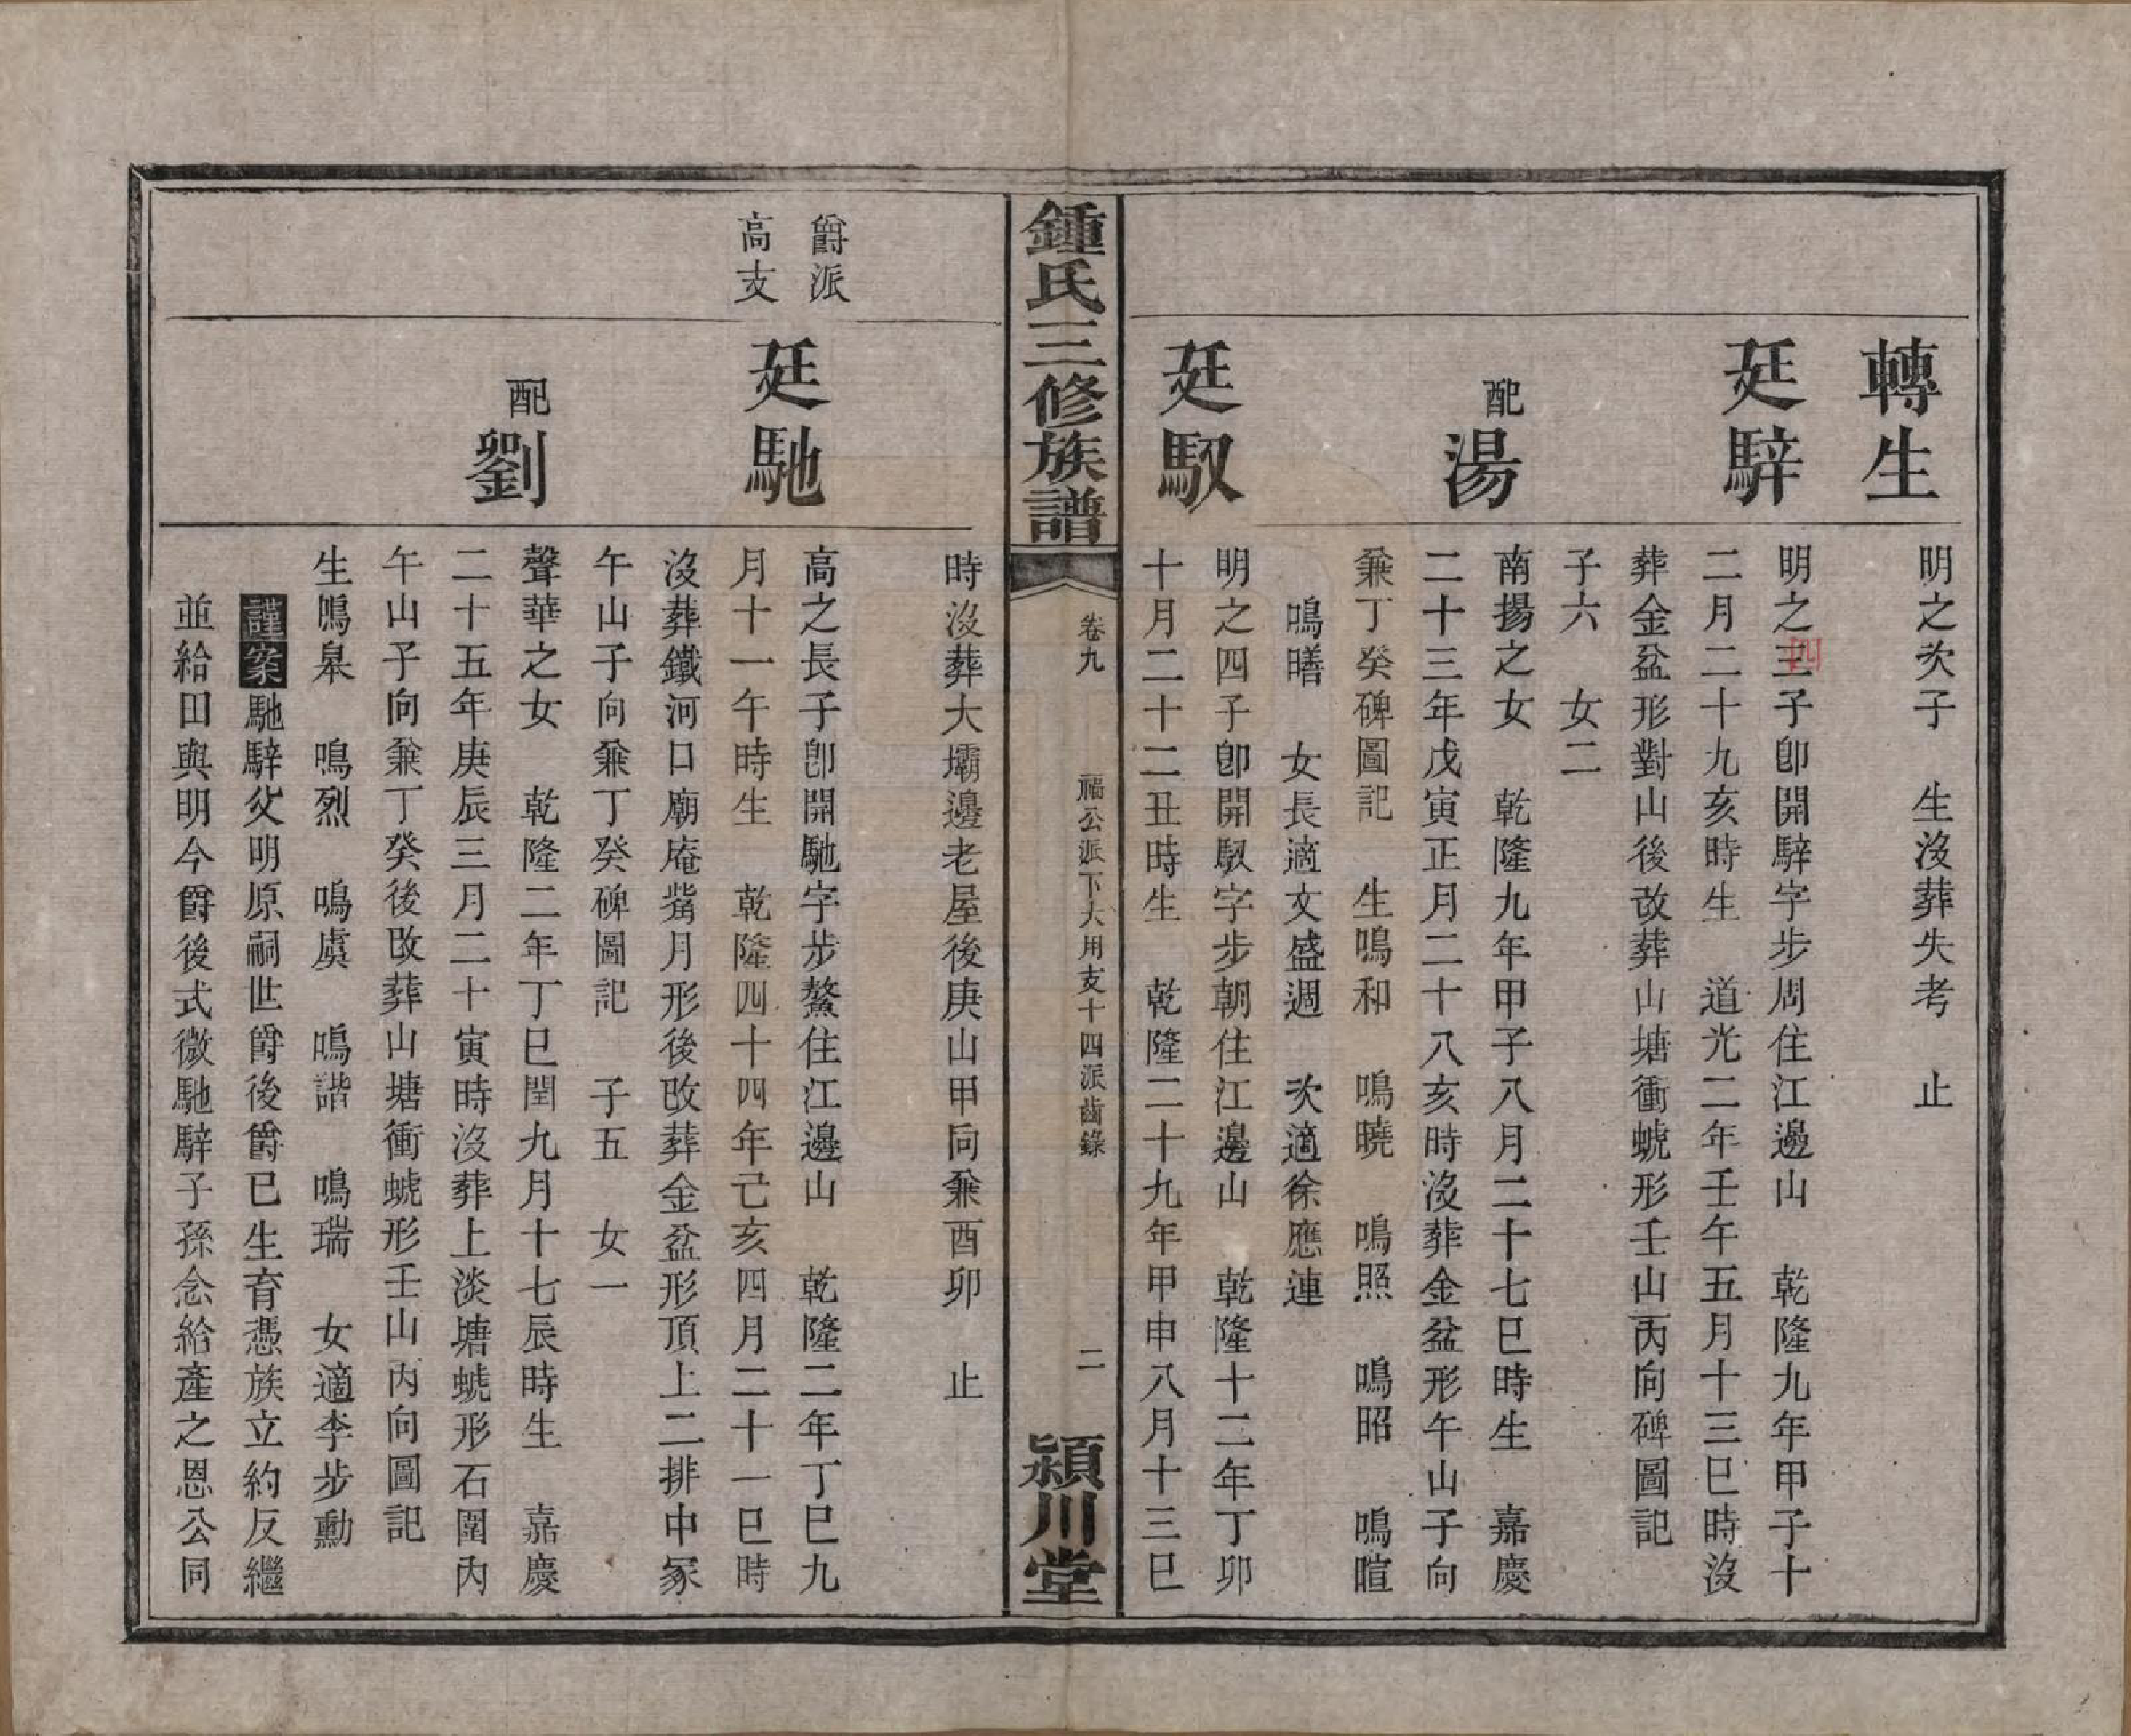 轉生
明之次子　生沒葬失考　止
廷騂
明之三四子卽開騂字步周住江邊山　乾隆九年甲子十
二月二十九亥時生　道光二年壬午五月十三巳時沒
葬金盆形對山後改葬山塘衝螔形壬山丙向碑圖記
子六　女二
配湯
南揚之女　乾隆九年甲子八月二十七巳時生　嘉慶
二十三年戊寅正月二十八亥時沒葬金盆形午山子向
兼丁癸碑圖記　生鳴和　鳴曉　鳴照　鳴昭　鳴暄
鳴㬢　女長適文盛週　次適徐應連
廷馭
明之四子卽開馭字步朝住江邊山　乾隆十二年丁卯
十月二十二丑時生　乾隆二十九年甲申八月十三巳
鍾氏三修族譜
卷九　福公派下大用支十四派齒錄　二
潁川堂
時沒葬大壩邊老屋後庚山甲向兼酉卯　止
爵派
高支
廷馳
高之長子卽開馳字步鰲住江邊山　乾隆二年丁巳九
月十一午時生　乾隆四十四年己亥四月二十一巳時
沒葬鐵河口廟庵觜月形後改葬金盆形頂上二排中冢
午山子向兼丁癸碑圖記　子五　女一
配劉
聲華之女　乾隆二年丁巳閏九月十七辰時生　嘉慶
二十五年庚辰三月二十寅時沒葬上淡塘螔形石圍內
午山子向兼丁癸後改葬山塘衝螔形壬山丙向圖記
生鳴皋　鳴烈　鳴虞　鳴諧　鳴瑞　女適李步勳
謹案馳騂父明原嗣世爵後爵已生育憑族立約反繼
並給田與明今爵後式微馳騂子孫念給產之恩公同